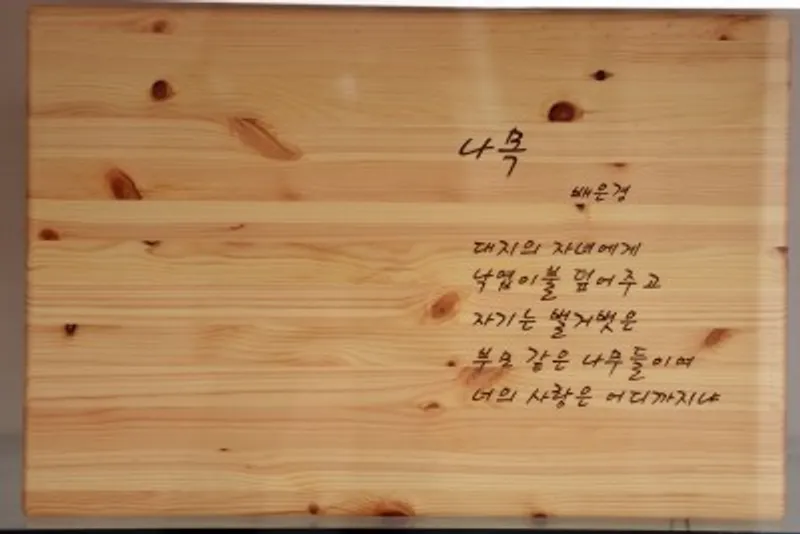 나목
배은경
대지의 자녀에게
낙엽이불 덮어주고
자기는 벌거벗은
부모 같은 나무들이여
너의 사랑은 어디까지냐